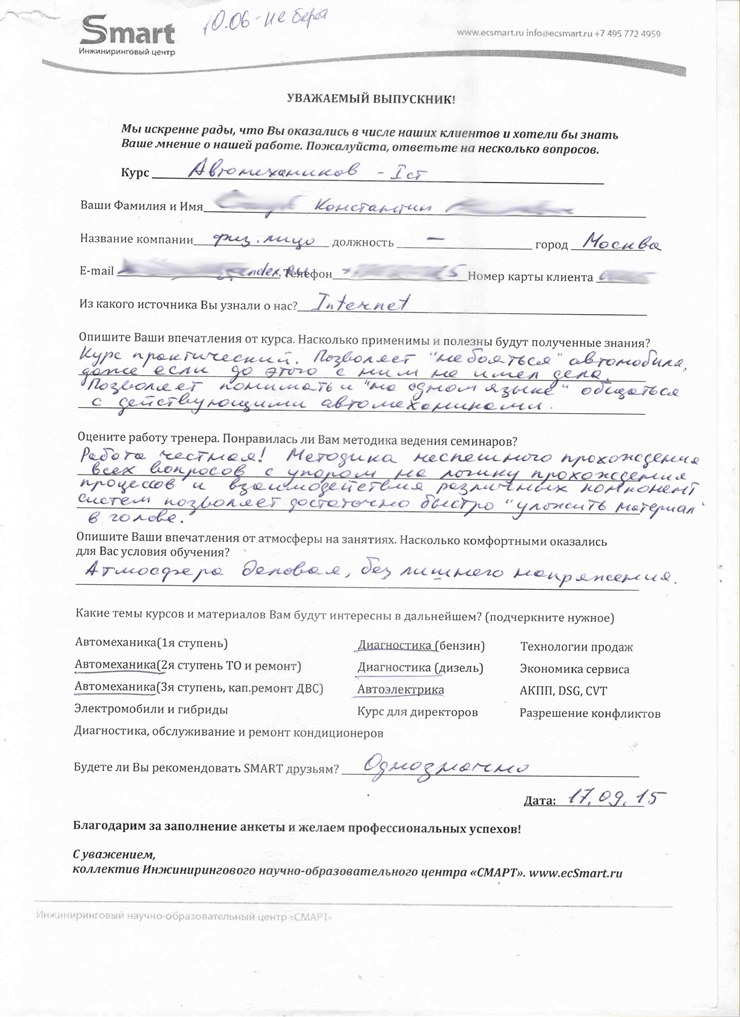 Smart
Инжиниринговый центр
10.06 - не
www.ecsmart.ru info@ecsmart.ru +7 495 772 4959
УВАЖАЕМЫЙ ВЫПУСКНИК!
Мы искренне рады, что Вы оказались в числе наших клиентов и хотели бы знать
Ваше мнение о нашей работе. Пожалуйста, ответьте на несколько вопросов.
Курс Автомехаников - I ст
Ваши Фамилия и Имя Константин
Название компании физ. лицо должность — город Москва
E-mail Телефон Номер карты клиента
Из какого источника Вы узнали о нас? Internet
Опишите Ваши впечатления от курса. Насколько применимы и полезны будут полученные знания?
Курс практический. Позволяет "не бояться" автомобиля,
даже если до этого с ним не имел дела.
Позволяет понимать и "на одном языке" общаться
с действующими автомеханиками.
Оцените работу тренера. Понравилась ли Вам методика ведения семинаров?
Работа честная! Методика неспешного прохождения
всех вопросов с упором на логику прохождения
процессов и взаимодействия различных компонент
систем позволяет достаточно быстро "уложить материал"
в голове.
Опишите Ваши впечатления от атмосферы на занятиях. Насколько комфортными оказались
для Вас условия обучения?
Атмосфера деловая, без лишнего напряжения.
Какие темы курсов и материалов Вам будут интересны в дальнейшем? (подчеркните нужное)
Автомеханика(1я ступень) Диагностика (бензин) Технологии продаж
Автомеханика(2я ступень ТО и ремонт) Диагностика (дизель) Экономика сервиса
Автомеханика(3я ступень, кап.ремонт ДВС) Автоэлектрика АКПП, DSG, CVT
Электромобили и гибриды Курс для директоров Разрешение конфликтов
Диагностика, обслуживание и ремонт кондиционеров
Будете ли Вы рекомендовать SMART друзьям? Однозначно
Дата: 17.09.15
Благодарим за заполнение анкеты и желаем профессиональных успехов!
С уважением,
коллектив Инжинирингового научно-образовательного центра «СМАРТ». www.ecSmart.ru
Инжиниринговый научно-образовательный центр «СМАРТ»